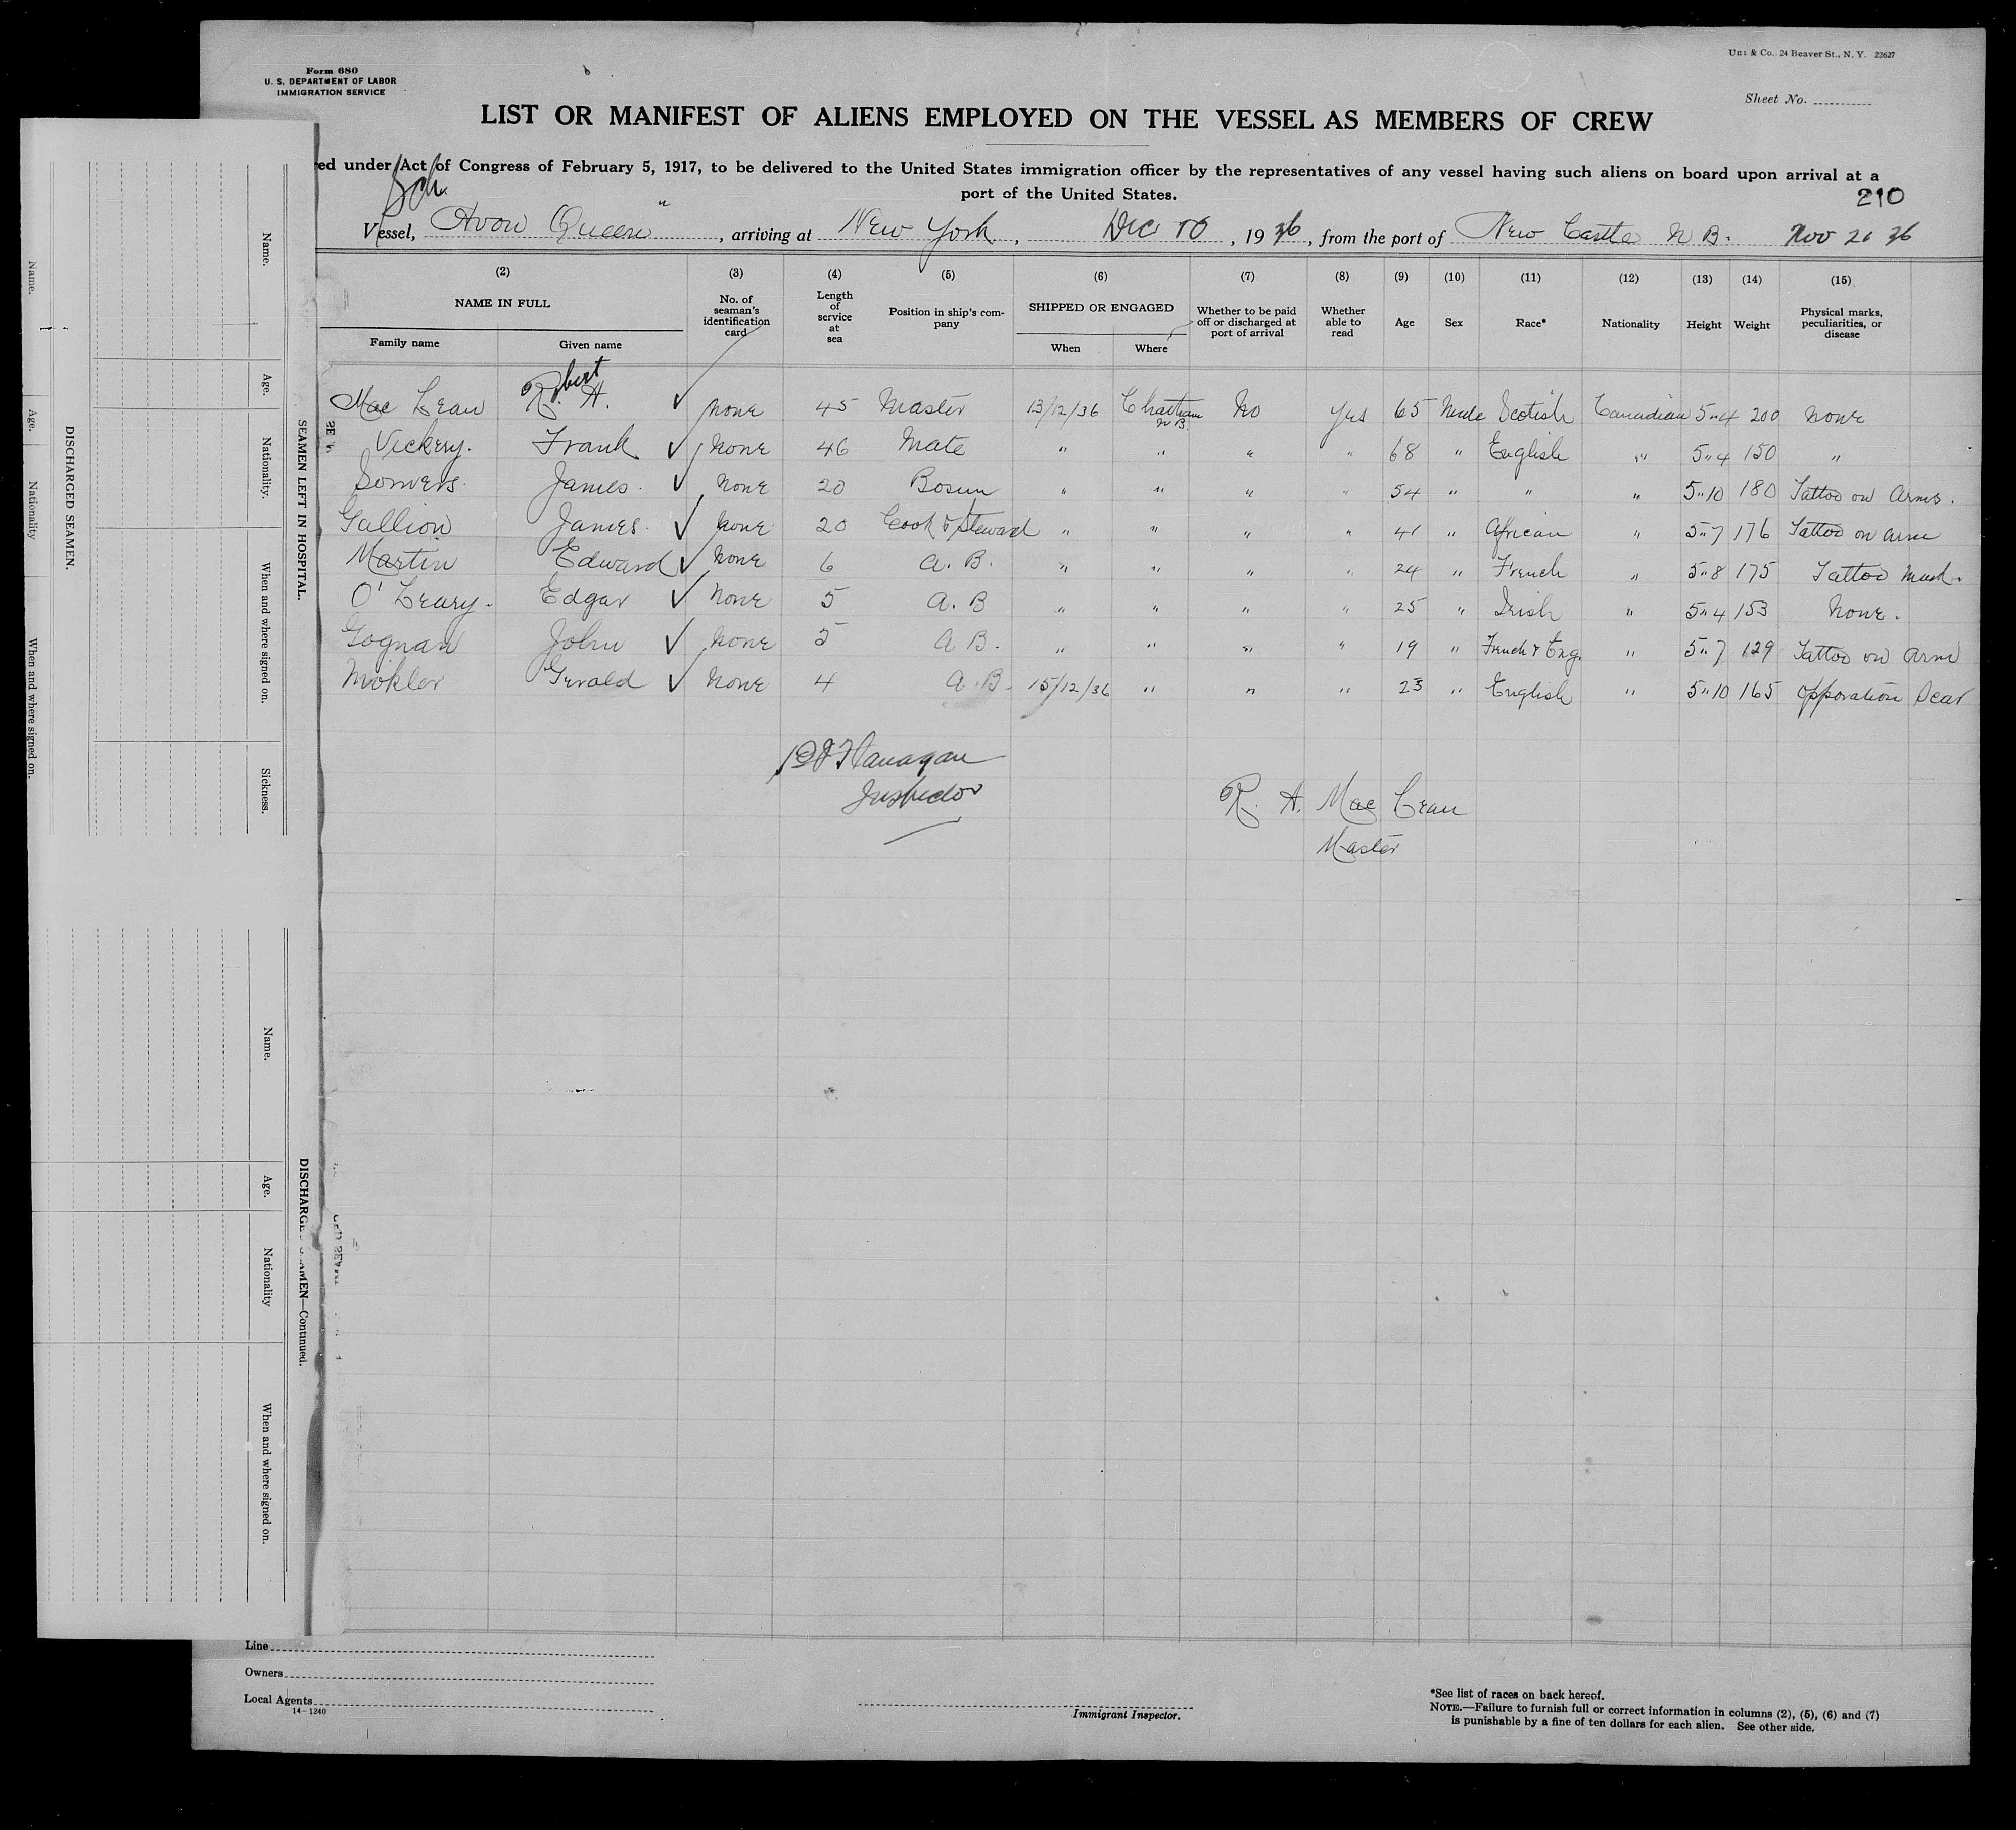 Form 680
U. S. DEPARTMENT OF LABOR
IMMIGRATION SERVICE
& Co. 24 Beaver St., N. Y. 22627
Sheet No.
LIST OR MANIFEST OF ALIENS EMPLOYED ON THE VESSEL AS MEMBERS OF CREW
ed under Act of Congress of February 5, 1917, to be delivered to the United States immigration officer by the representatives of any vessel having such aliens on board upon arrival at a
port of the United States.
210
Sch.
Vessel, Avon Queen", arriving at New York, Dec 10, 1936, from the port of New Castle N B. Nov 26 36
(2) (3) (4) (5) (6) (7) (8) (9) (10) (11) (12) (13) (14) (15)
NAME IN FULL No. of seaman's identification card Length of service at sea Position in ship's company SHIPPED OR ENGAGED Whether to be paid off or discharged at port of arrival Whether able to read Age Sex Race* Nationality Height Weight Physical marks, peculiarities, or disease
Family name Given name When Where
Mac Lean Robert A. ✓ None 45 Master 13/12/36 Chatham N B. No Yes 65 Male Scotish Canadian 5"4 200 None
Vickery. Frank ✓ None 46 Mate " " " " 68 " English " 5"4 150 "
Somers. James. ✓ None 20 Bosun " " " " 54 " " " 5"10 180 Tattoo on Arms.
Gallion James. ✓ None 20 Cook & Steward " " " " 41 " African " 5"7 176 Tattoo on arm
Martin Edward ✓ None 6 A. B. " " " " 24 " French " 5"8 175 Tattoo Mark.
O'Leary. Edgar ✓ None 5 A. B " " " " 25 " Irish " 5"4 153 None.
Gognan John ✓ None 5 A B. " " " " 19 " French & Eng. " 5"7 129 Tattoo on Arm
Mokler Gerald ✓ None 4 A. B. 15/12/36 " " " 23 " English " 5"10 165 Opporation Scar
Flanagan
Inspector
R. A. Mac Lean
Master
Line
Owners
Local Agents
14-1240
Immigrant Inspector.
*See list of races on back hereof.
NOTE.—Failure to furnish full or correct information in columns (2), (5), (6) and (7)
is punishable by a fine of ten dollars for each alien. See other side.
SEAMEN LEFT IN HOSPITAL.
Name. Age. Nationality. When and where signed on. Sickness.
DISCHARGED SEAMEN.
Name. Age. Nationality When and where signed on.
DISCHARGED SEAMEN—Continued.
Name. Age. Nationality When and where signed on.